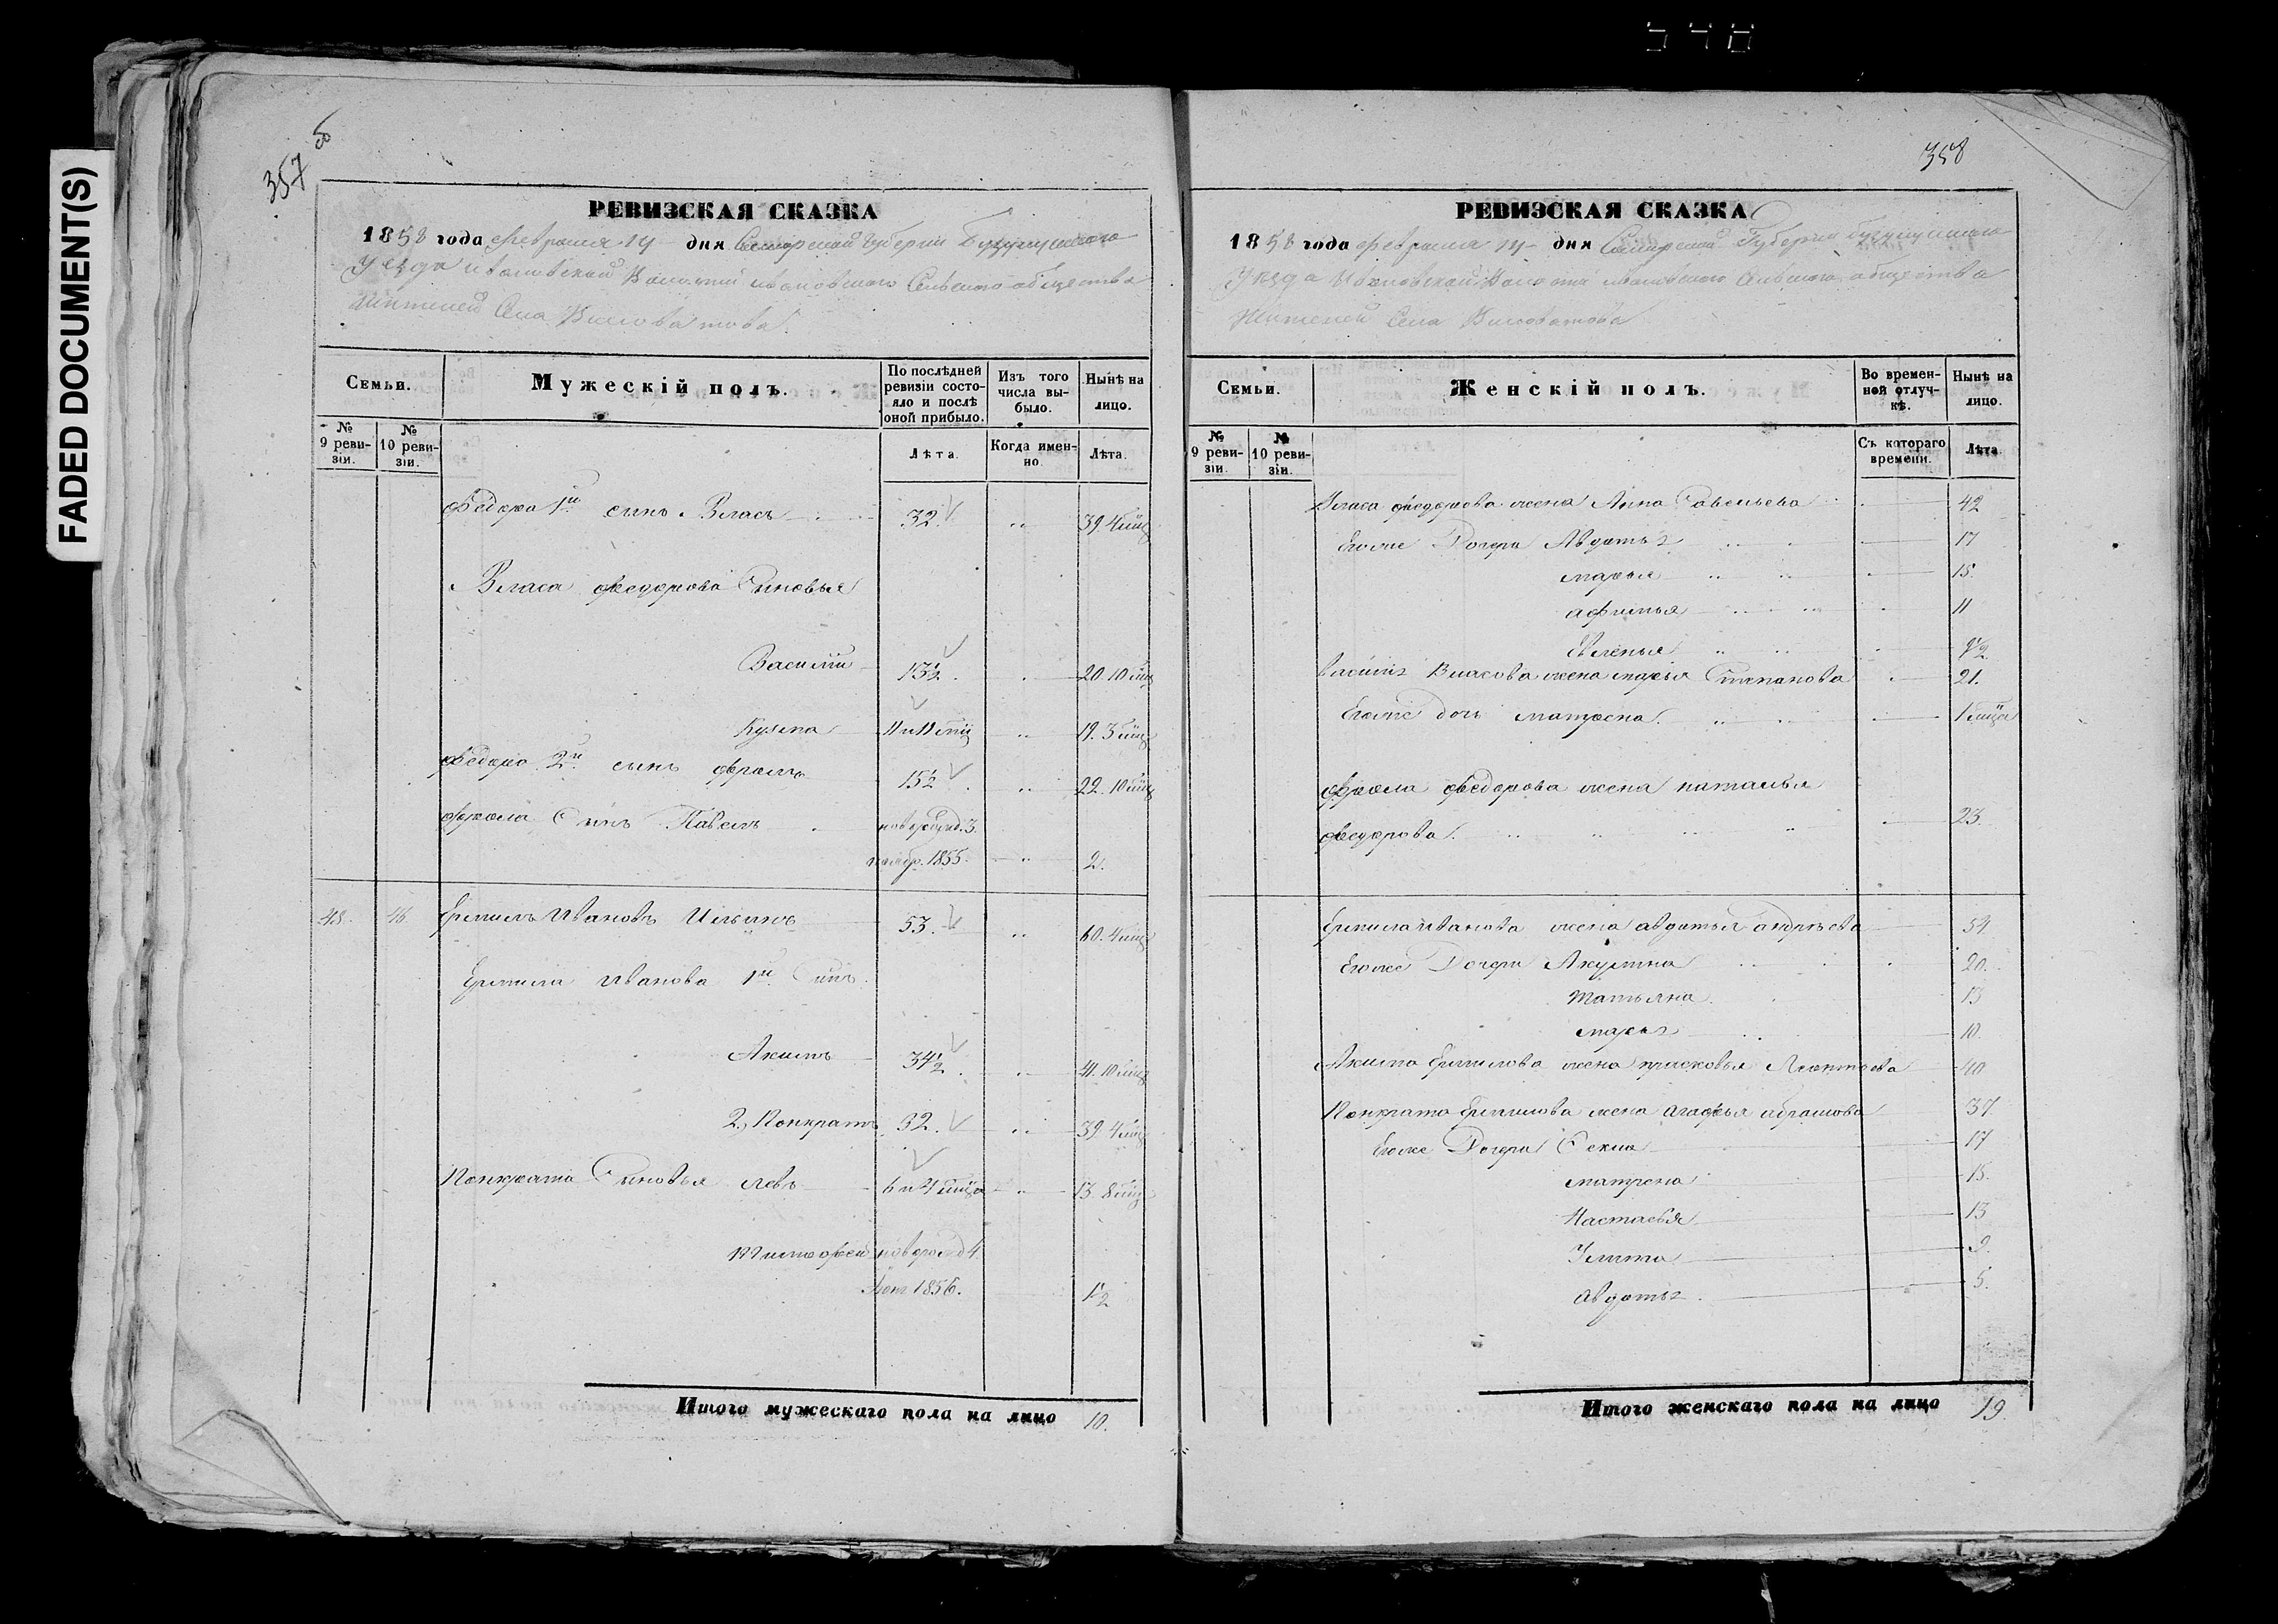 FADED DOCUMENT(S)
357 об
РЕВИЗСКАЯ СКАЗКА
1858 года февраля 14 дня Самарской Губернии Бузулукского
Уезда Ивановской Волости Ивановского Сельского общества
Жителей Села Виловатова
Семьи.
Мужескій полъ.
По послѣдней ревизіи состояло и послѣ оной прибыло.
Изъ того числа выбыло.
Нынѣ на лицо.
№ 9 ревизіи.
№ 10 ревизіи.
Лѣта.
Когда именно
Лѣта.
Федора 1й сынъ Власъ 32 39. 4 мц
Власа Федорова Сыновья
Василiй 13½ 20. 10 мц
Кузма 11 и 11 мц 19. 3 мц
Федора 2й сынъ Фролъ 15½ 22. 10 мц
Фрола Сынъ Павелъ новорожд. 3
ноябр. 1855. 2.
48. 46 Ермилъ Ивановъ Ильинъ 53. 60. 4 мц
Ермила Иванова 1й Сынъ
Акимъ 34½ 41. 10 мц
2, Понкратъ 32. 39. 4 мц
Понкрата Сыновья Левъ 6 и 4 мца 13. 8 мц
Тимофей новорожд 4
1856. 1½
Итого мужескаго пола на лицо 10.
358
РЕВИЗСКАЯ СКАЗКА
1858 года февраля 14 дня Самарской Губернии Бузулукского
Уезда Ивановской Волости Ивановского Сельского общества
Жителей Села Виловатова
Семьи.
Женскій полъ.
Во временной отлучкѣ.
Нынѣ на лицо.
№ 9 ревизіи.
№ 10 ревизіи.
Съ котораго времени.
Лѣта
Власа Федорова жена Анна Савельева 42
Егоже Дочери Авдотья 17
Марья 15.
Афимья 11
Василья Власова жена Марья Степанова 21.
Егоже дочь Матрена 1 мца
Фрола Федорова жена Наталья
Федорова. 23.
Ермила Иванова жена Авдотья Андреева 54
Егоже Дочери Акулина 20.
Татьяна 13
Марья 10.
Акима Ермилова жена Прасковья Леонтьева 40
Понкрата Ермилова жена Агафья Абрамова 37
Егоже Дочери Фекла 17
Матрена 15.
Настасья 13
Улита 9.
Авдотья 5.
Итого женскаго пола на лицо 19.